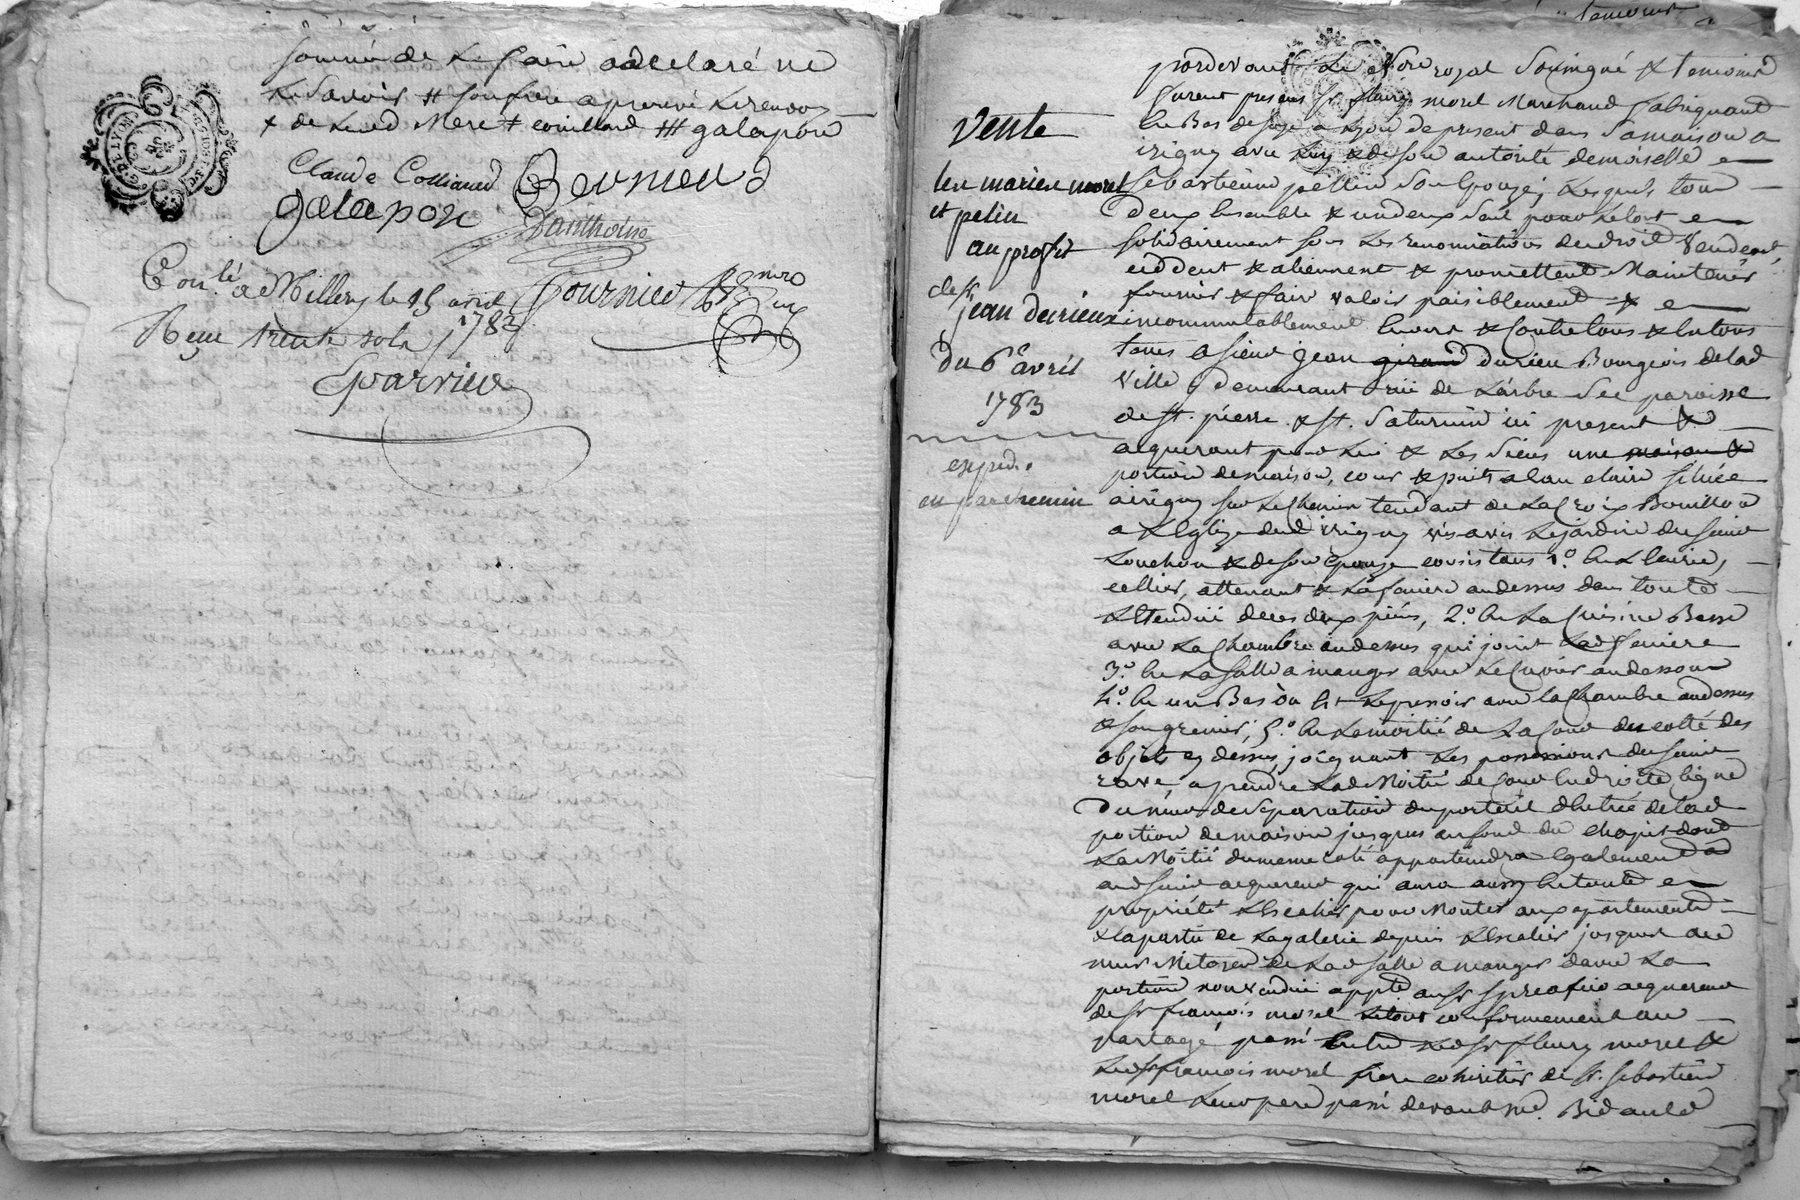 sommé de le faire a declaré ne
le savoir # souffrere approuvé le renvoy
+ de leurd Mere + couillard ## galapon
Claude Colliard Bernieud
galapon
Janthoine
Con.lé a Millery le 15 avril 1783 Fournier
Reçu trente sols
Gvarnieu
temoins
pardevant le No.re royal soussigné & temoins
furent presens Sr fleury morel Marchand fabriquant
en Bas de soye a Lyon de present dans sa maison a
irigny avec luy & de son autorité demoiselle
Sebastienne pellin son Epouze, lesquels tous
deux Ensemble & un deux seul pour le tout
solidairement sous les renonciations de droit Vendent,
cèddent & aliennent & promettent Maintenir
fournir & faire valoir paisiblement &
incommutablement Envers & Contre tous & En tous
tems a sieur jean durieu Bourgeois de lad
Ville y demeurant rüe de L'arbre Sec paroisse
de St. pierre & St. Saturnin ici present &
acquerant pour lui & les siens une
portion de maison, cour & puits a l'eau claire sitüée
a irigny sur le Chemin tendant de la Croix Bouillon
a L'Eglize dud irigny vis avis le jardin du sieur
Louchon & de son Epouze consistans 1.o En l'Ecurie,
cellier, attenant & la feniere audessus dans toute
L'Etendüe de ces deux pièces, 2.o En la Cuisine Basse
avec la Chambre audessus qui joint lad feniere
3.o En la salle a manger avec le Cuvier audessous
4.o En un Bas ou Est le pressoir avec la Chambre audessus
& son grenier; 5.o En la moitié de la Cour du cotté des
objets cy dessus joignant les possessions du sieur
a prendre lad Moitié de Cour En droite ligne
Du mur de Separation du porteil d'Entrée de lad
portion de maison jusques au fond du chapit dont
La Moitié du meme coté appartiendra Egalement
aud sieur acquereur qui aura aussy En toute
propriété L'Escalier pour Monter aux apartements
& la partie de la galerie depuis L'Escalier jusques au
mur Mitoyen de lad salle a manger d'avec la
portion non vendüe appte. au Sr Spreafico acquereur
de Sr françois morel le tout conformement au
partage passé Entre led Sr fleury morel &
led Sr françois morel frere coheritier de Sr. Sebastien
morel leur pere passé devant me. Bidauld
Vente
les mariez morel
et pelin
au profit
de Sr
jean durieux
du 6e avril
1783
expéd.
en parchemin